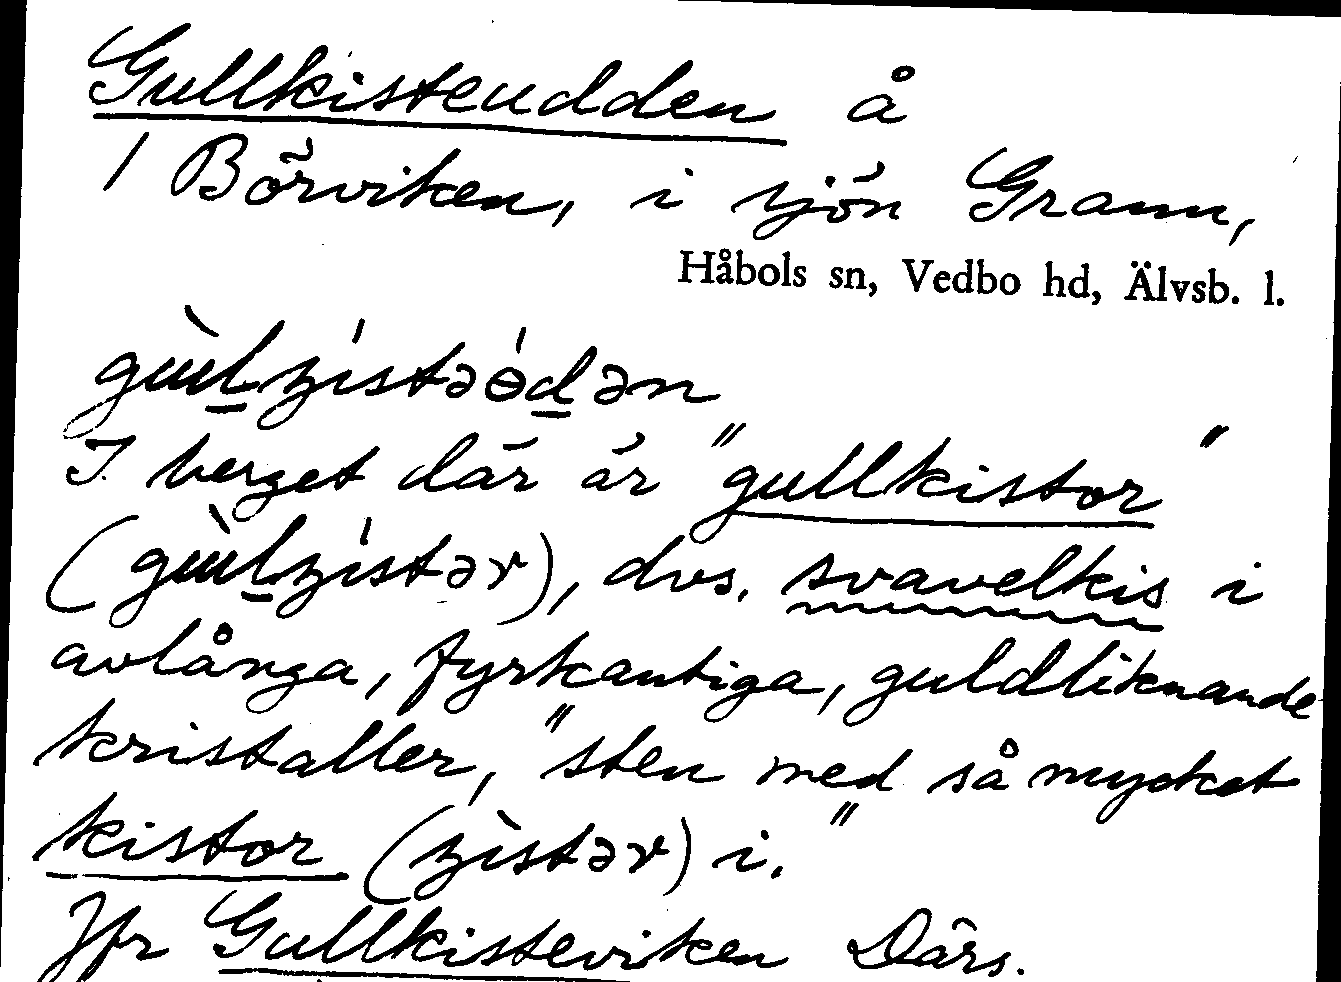 Gullkisteudden å
/ Börviken, i sjön Grann,
Håbols sn, Vedbo hd, Älvsb. l.
I berget där är "gullkistor"
dvs. svavelkis i
avlånga, fyrkantiga, guldliknande
kristaller, "sten med så mycket
kistor (ʒìstər) i."
Jfr Gullkisteviken Därs.